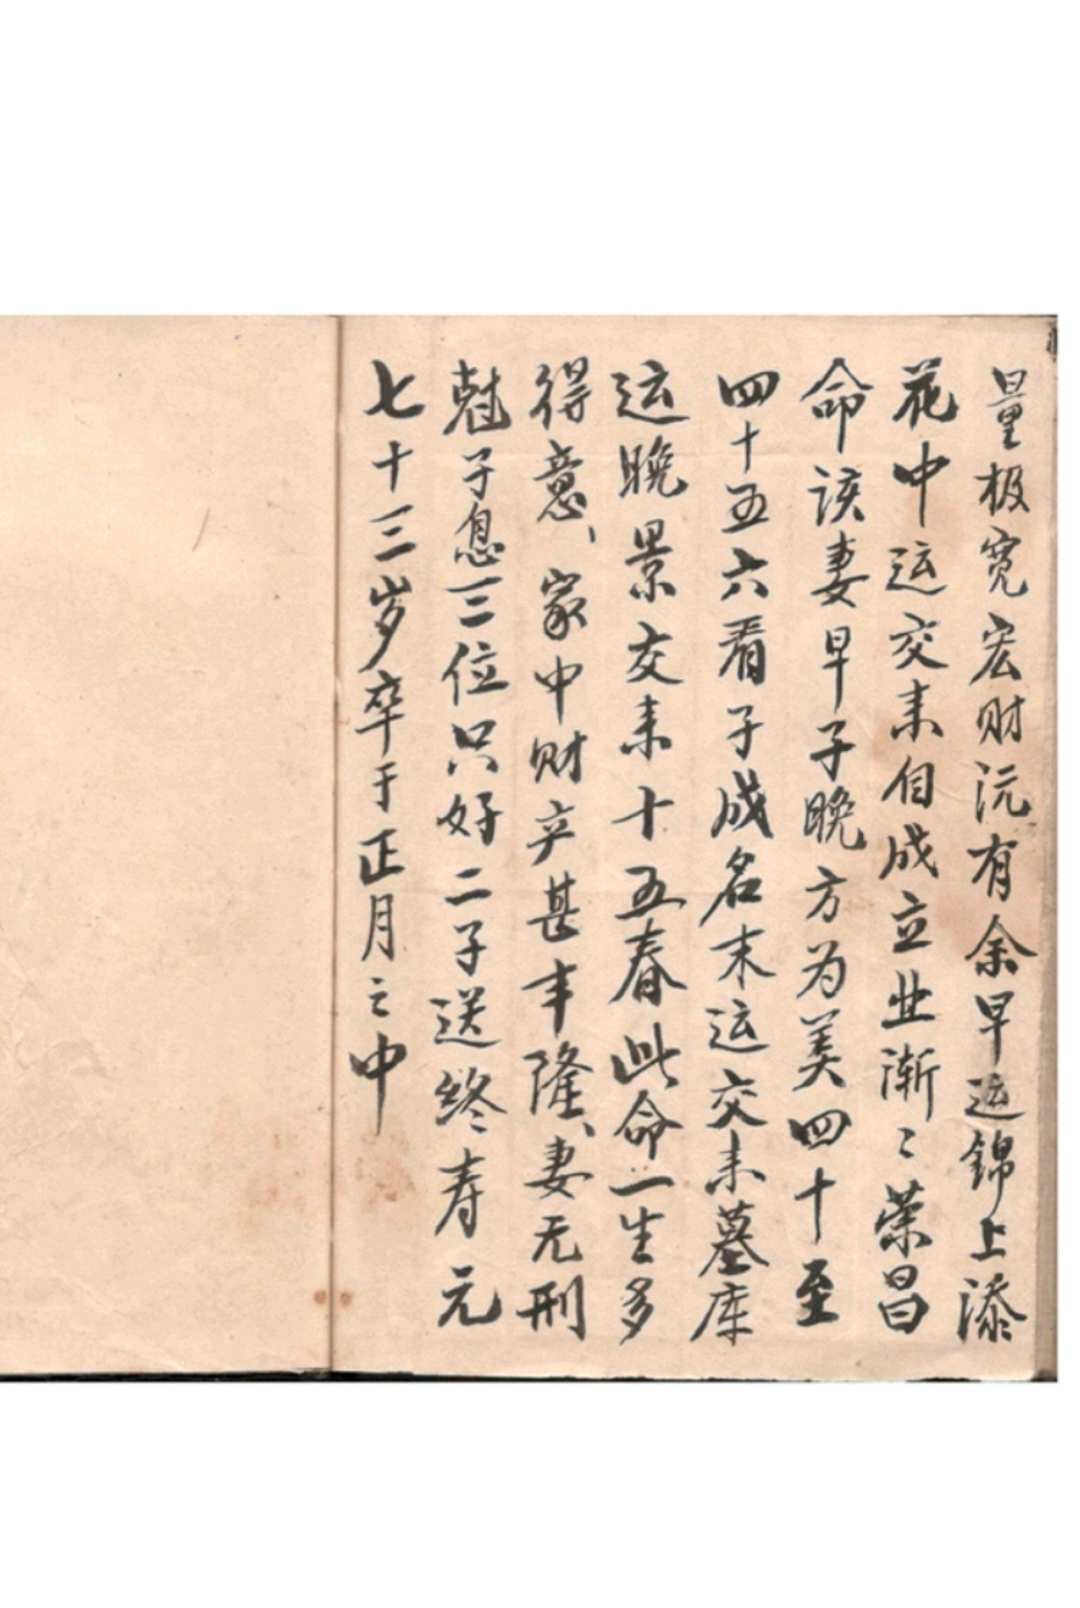 量极宽宏财沅有余早运錦上添
花中运交来自成立业渐々荣昌
命该妻早子晚方为美四十至
四十五六看子成名末运交来墓库
运晚景交来十五春此命一生多
得意、家中财产甚丰隆、妻无刑
尅子息三位只好二子送终寿元
七十三岁卒于正月之中